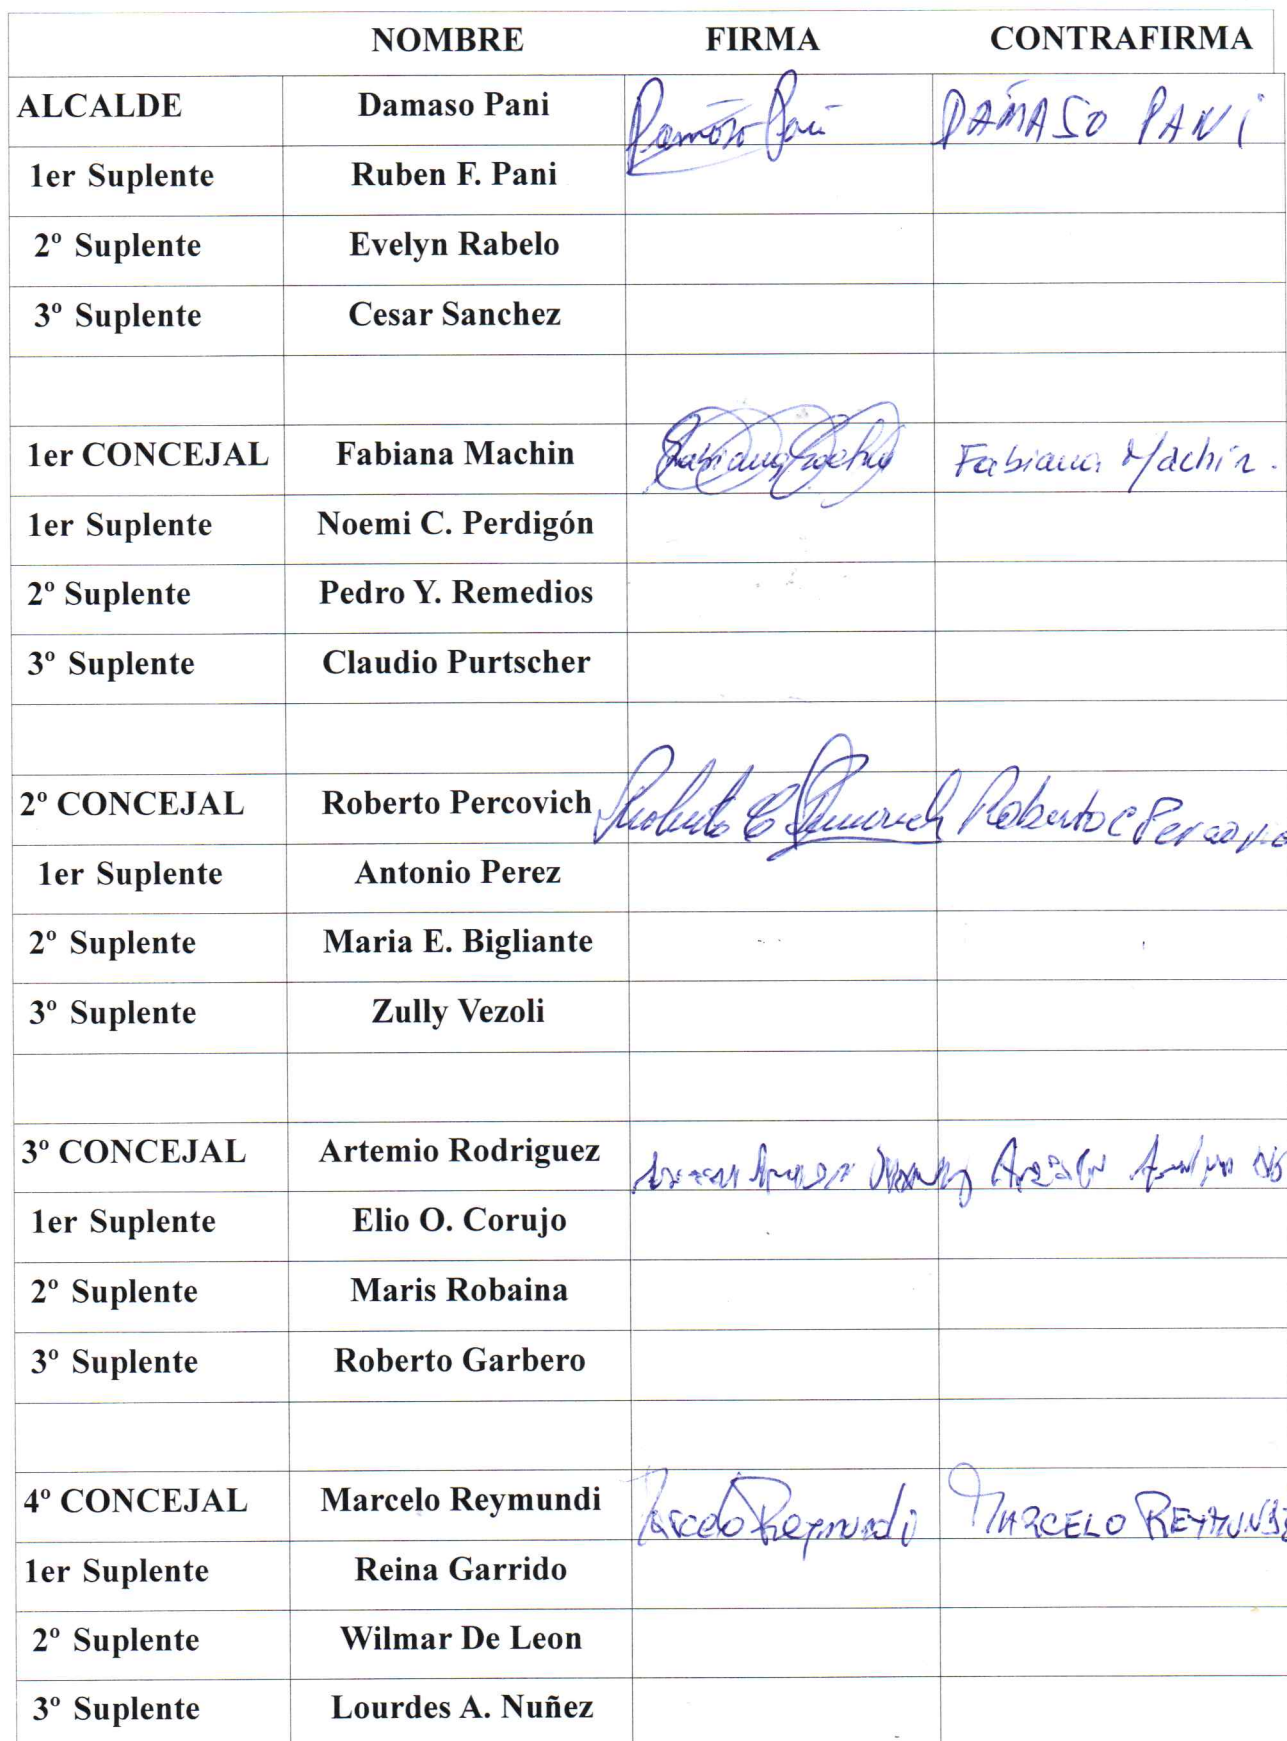 NOMBRE FIRMA CONTRAFIRMA
ALCALDE Damaso Pani Damaso Pani DAMASO PANI
1er Suplente Ruben F. Pani
2º Suplente Evelyn Rabelo
3º Suplente Cesar Sanchez
1er CONCEJAL Fabiana Machin Fabiana Machin Fabiana Machin.
1er Suplente Noemi C. Perdigón
2º Suplente Pedro Y. Remedios
3º Suplente Claudio Purtscher
2º CONCEJAL Roberto Percovich Roberto C Percovich Roberto C Percovic
1er Suplente Antonio Perez
2º Suplente Maria E. Bigliante
3º Suplente Zully Vezoli
3º CONCEJAL Artemio Rodriguez
1er Suplente Elio O. Corujo
2º Suplente Maris Robaina
3º Suplente Roberto Garbero
4º CONCEJAL Marcelo Reymundi Marcelo Reymundi MARCELO REYMUNDI
1er Suplente Reina Garrido
2º Suplente Wilmar De Leon
3º Suplente Lourdes A. Nuñez